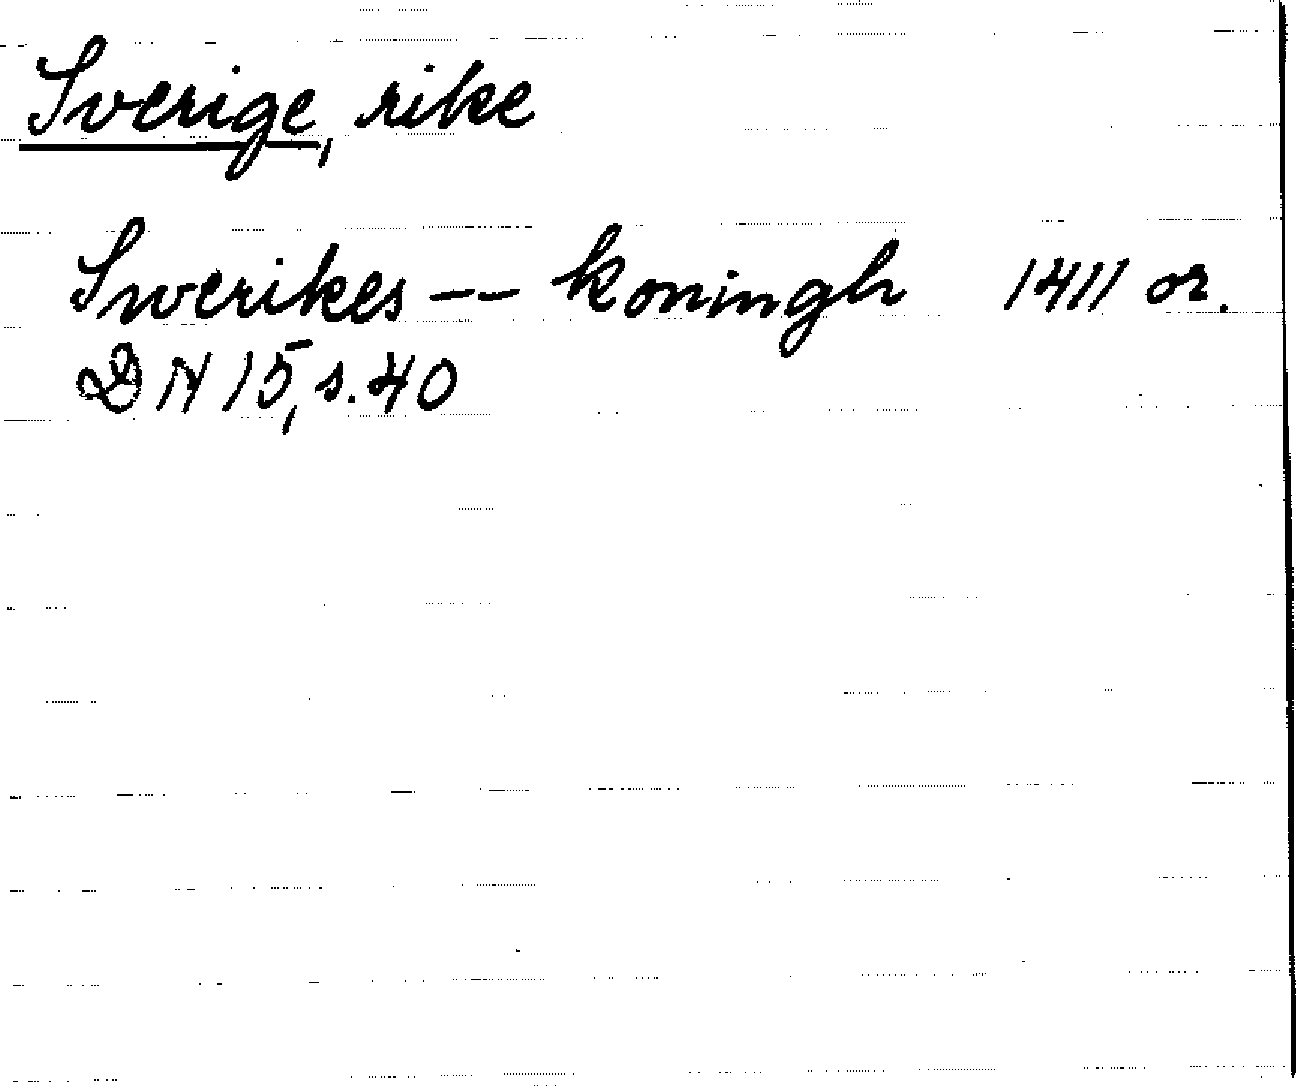 Sverige, rike
Swerikes -- koningh 1411 or.
DN 15, s. 40